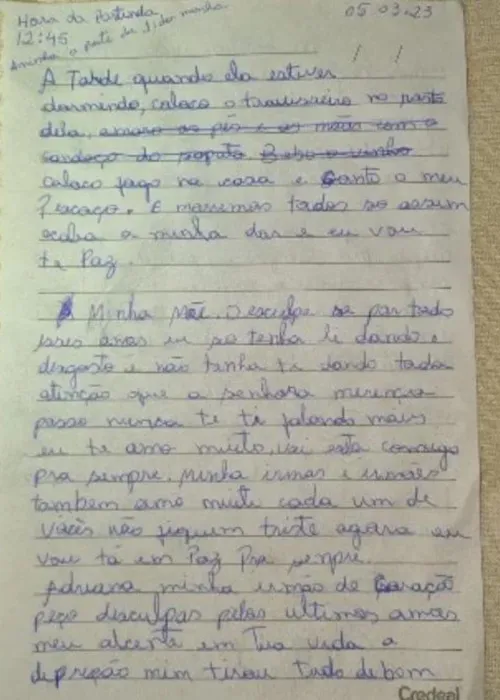 Hora da Partinda 05.03.23
12:45
A Tarde quando ela estiver
dormindo, coloco o travisseiro no rosto
dela, amaro os pés e as mãos com o
cardaço do sapato Bebo o vinho
coloco fogo na casa e Canto o meu
Pescoço. E morremos todos so assim
acaba a minha dor e eu vou
te Paz.
A Minha Mãe. Desculpe se por todo
esses anos eu so tenha li dando
desgosto e não tenha ti dando toda
atenção que a senhora merencia
posso nunca te ti falando mais
eu te amo muito, vai esta comigo
pra sempre. Minha irmas e irmãos
tambem amo muito cada um de
vocês não fiquem triste agora eu
vou tá em Paz Pra senpre.
Adriana minha irmão de Coração
peço desculpas pelos ultimos anos
meu em Tua vida a
depreção mim tirou tudo de bom
Credeal